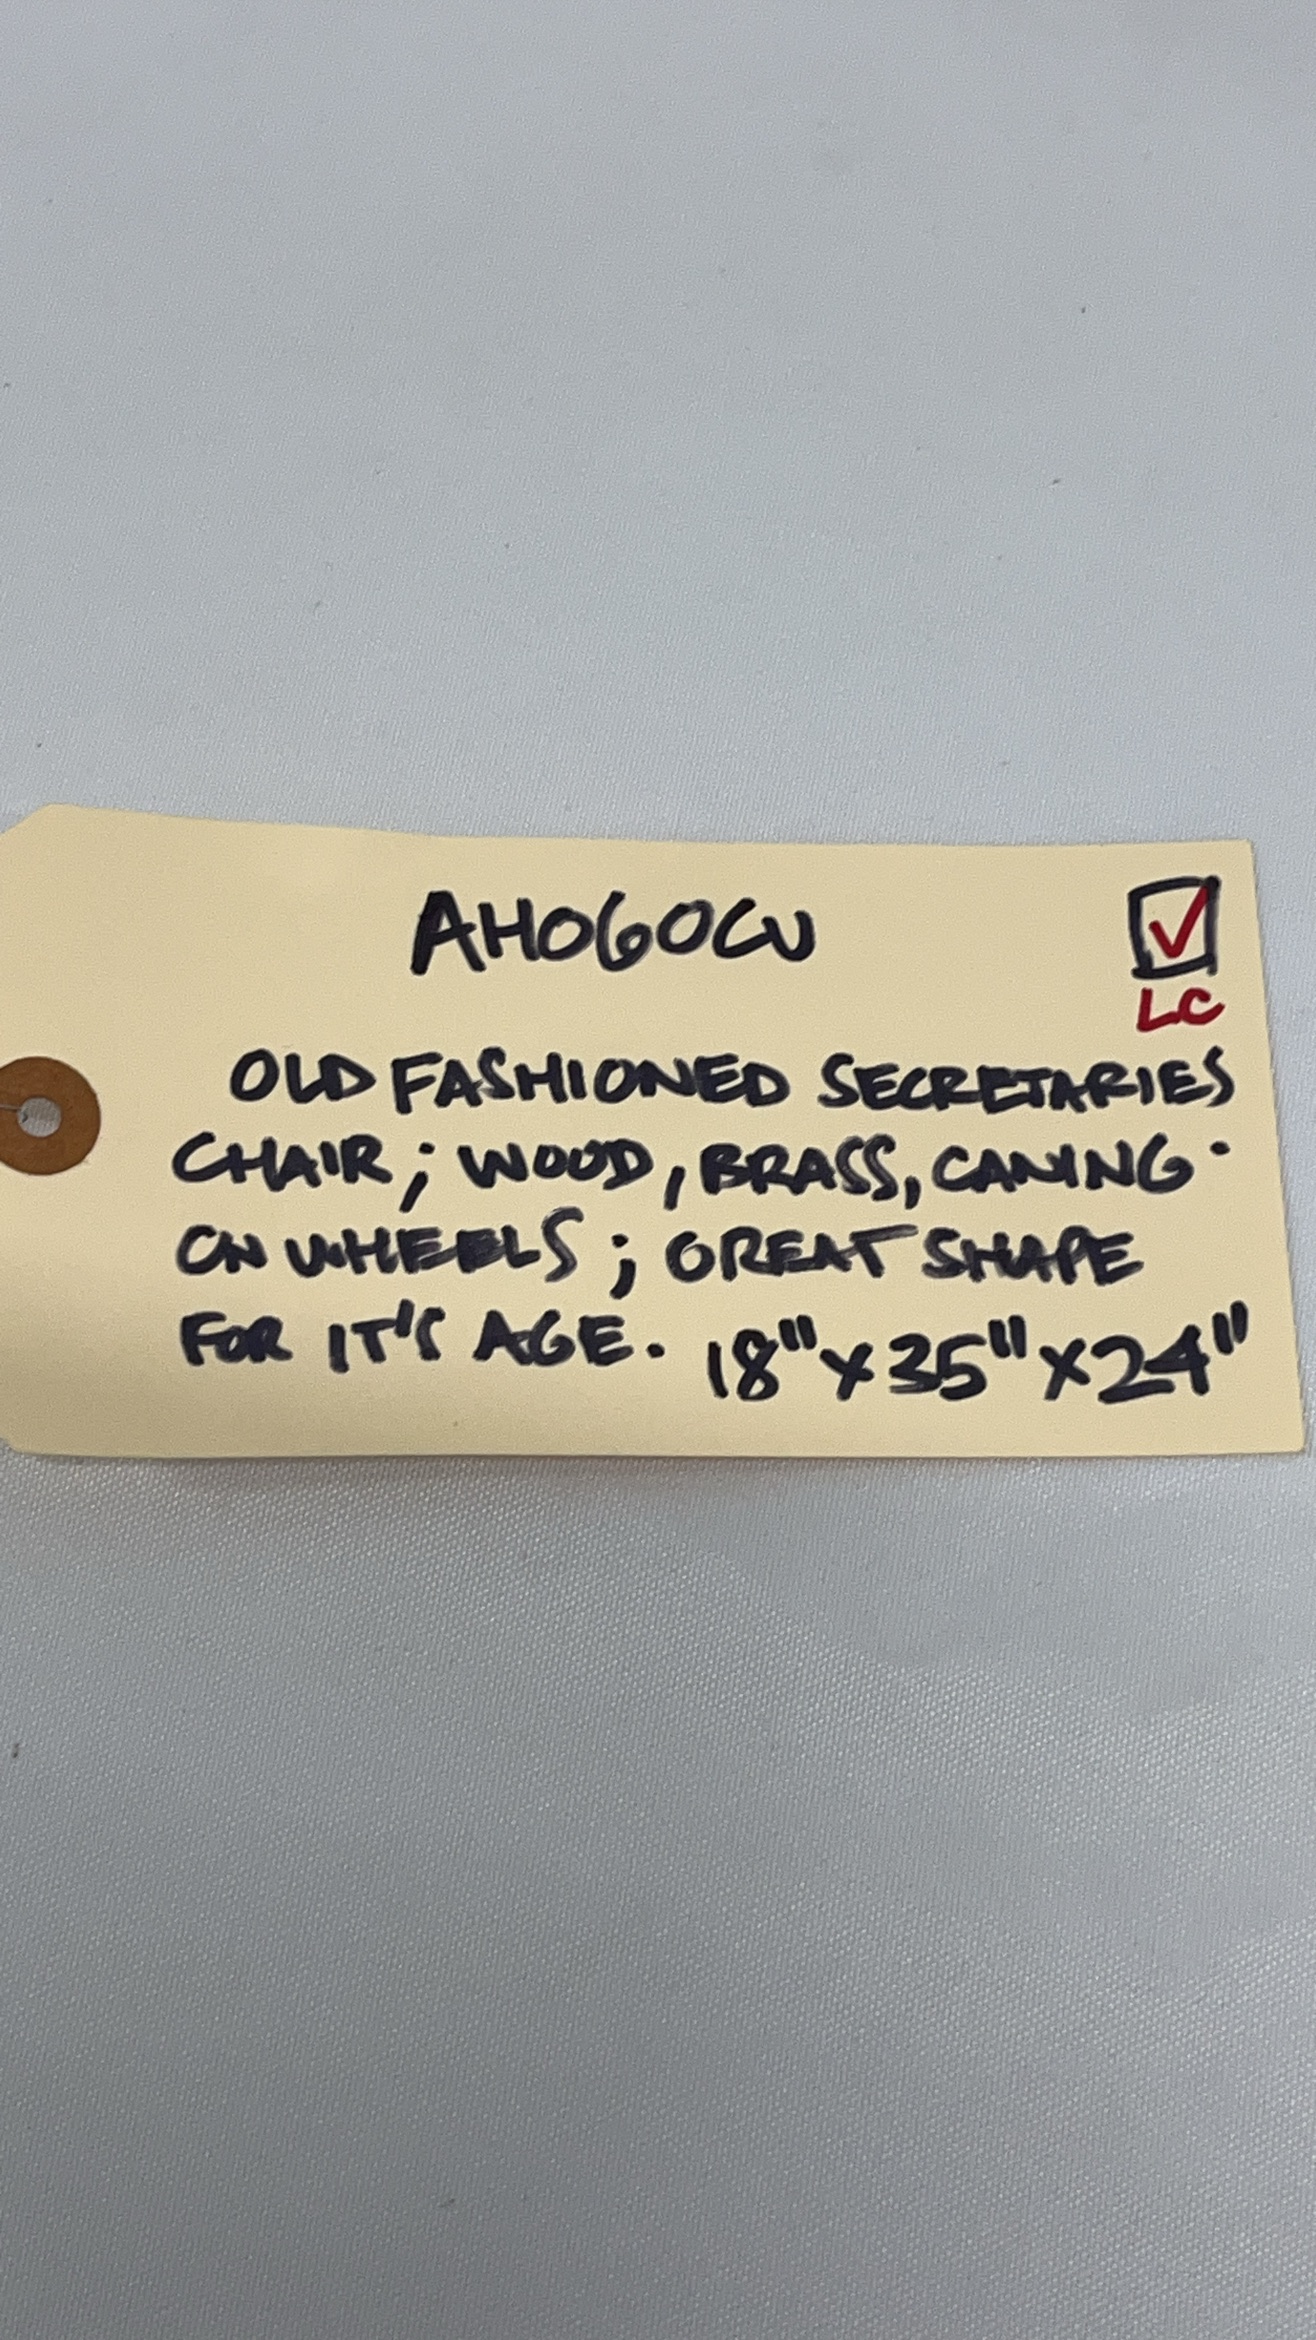 AHO60CU
☑
LC
OLD FASHIONED SECRETARIES
CHAIR; WOOD, BRASS, CANING ·
ON WHEELS; GREAT SHAPE
FOR IT'S AGE. 18"x35"x24"